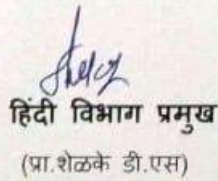 हिंदी विभाग प्रमुख
(प्रा.शेळके डी.एस)